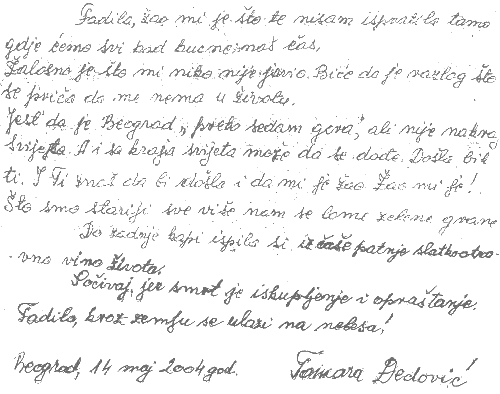 Fadila, žao mi je što te nisam ispratila tamo
gdje ćemo svi kad kucne naš čas.
Žalosno je što mi niko nije javio. Biće da je razlog što
se priča da me nema u životu.
Jest' da je Beograd „preko sedam gora", ali nije na kraj
svijeta. A i sa kraja svijeta može da se dođe. Došla bih
ti. I Ti znaš da bi došla i da mi je žao. Žao mi je!
Što smo stariji sve više nam se lome zelene grane
Do zadnje kapi ispila si iz čaše patnje slatkootro-
-vno vino života.
Počivaj, jer smrt je iskupljenje i opraštanje.
Fadila, kroz zemlju se ulazi na nebesa!
Beograd, 14 maj 2004 god. Tamara Đedović